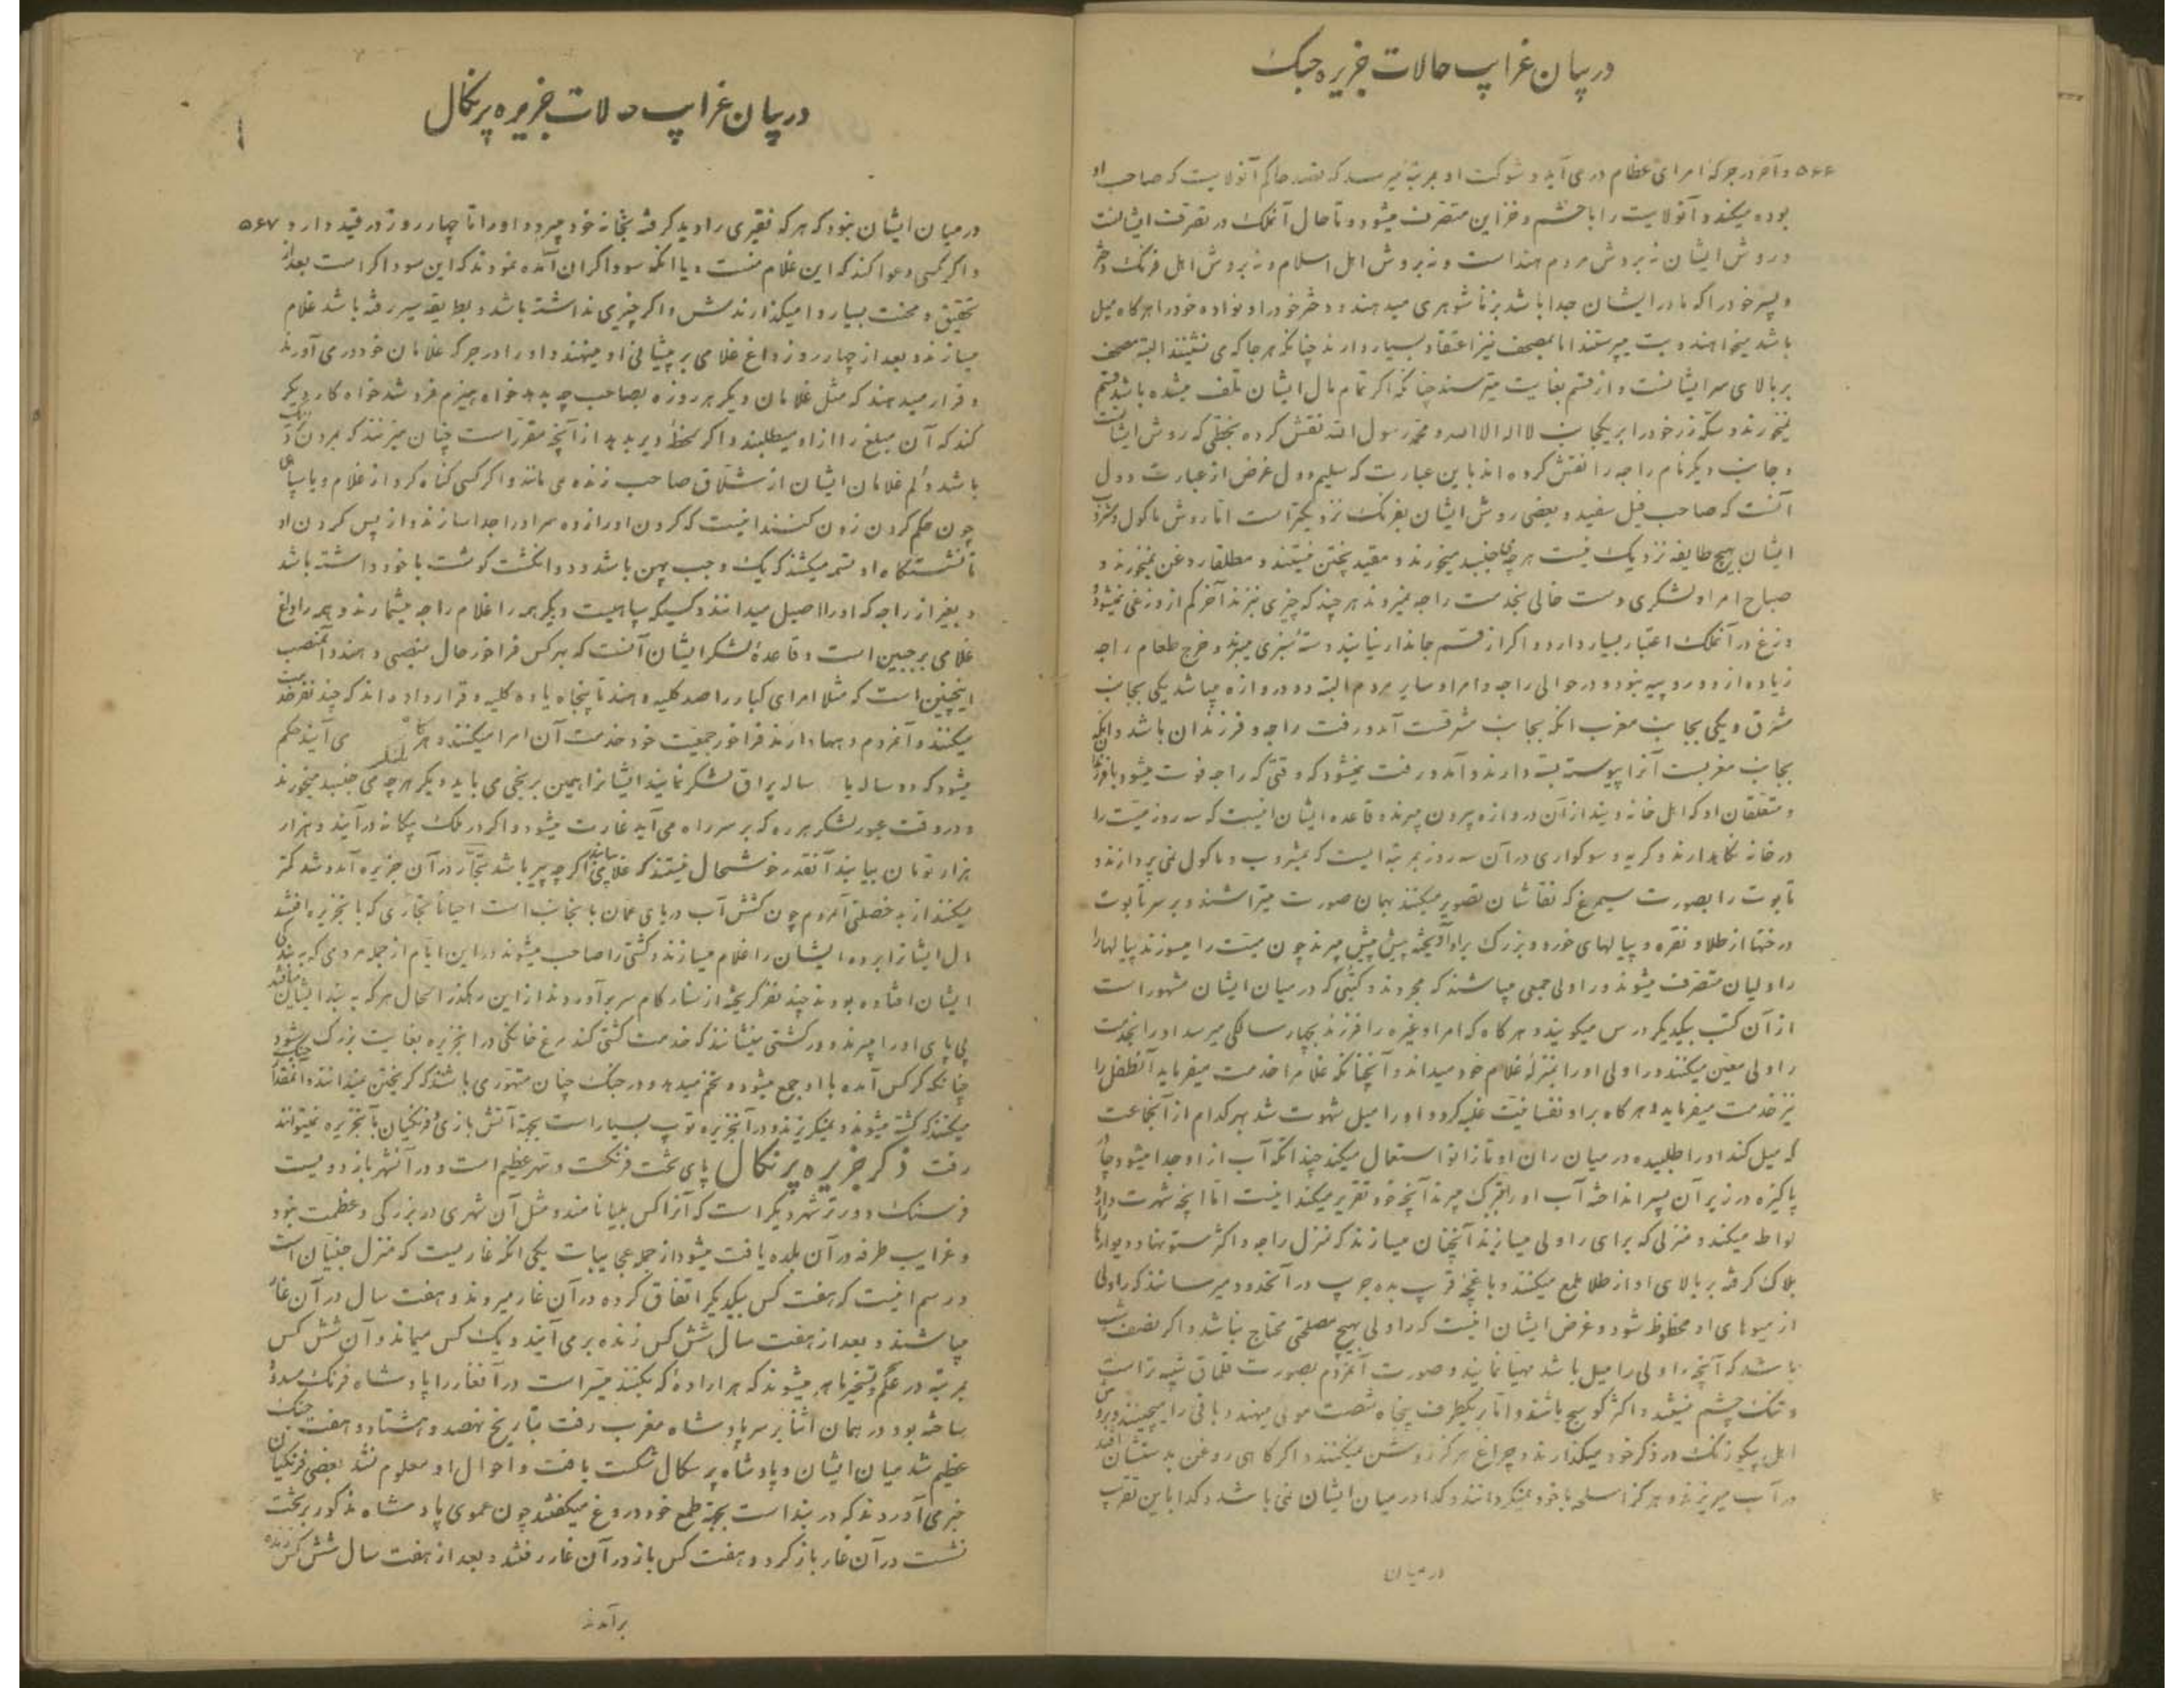 در بیان غرایب حالات جزیره جبک
۵۶۶ و آخر در جرکه امرای عظام در می آید و شوکت او بمرتبه میرسد که قصد حاکم آنولایت که صاحب او
بوده میکند و آنولایت را با حشم و خزاین متصرف میشود و تا حال آنملک در تصرف ایشانست
و روش ایشان نه بروش مردم هند است و نه بروش اهل اسلام و نه بروش اهل فرنک دختر
و پسر خود را که مادر ایشان جدا باشد بزنا شوهری میدهند و دختر خود را و نواده خود را هر کاه میل
باشد میخواهند و بت میپرستند اما بمصحف نیز اعتقاد بسیار دارند چنانکه هر جا که می نشینند البته مصحف
بر بالای سر ایشانست و از قسم بغایت میترسند چنانکه اگر تمام مال ایشان تلف میشده باشد قسم
نمیخورند و سکه زر خود را بر یکجانب لا اله الا الله و محمد رسول الله نقش کرده بخطی که روش ایشانست
و جانب دیکر نام راجه را نقش کرده اند باین عبارت که سلیم دول غرض از عبارت دول
آنست که صاحب فیل سفید و بعضی روش ایشان بفرنک نزدیکتر است اما روش ماکول و مشروب
ایشان بهیچ طایفه نزدیک نیست هر چه می جنبید میخورند و مقید پختن نیستند و مطلقا روغن نمیخورند و
صباح امرا و لشکری دست خالی بخدمت راجه نمیروند هر چند که چیزی نبرند آخر کم از وزغی نمیشود
وزغ در آنملک اعتبار بسیار دارد و اکر از قسم جاندار نیابند دسته سبزی میبرند و خرج طعام راجه
زیاده از دو روپیه نبود و در حوالی راجه و امرا و سایر مردم البته دو دروازه میباشد یکی بجانب
مشرق و یکی بجانب مغرب انکه بجانب مشرقست آمد و رفت راجه و فرزندان باشد و انکه
بجانب مغربست آنرا پیوسته بسته دارند و آمد و رفت نمیشود که وقتی که راجه فوت میشود با فرزندان
و متعلقان او که اهل خانه ویند از آن دروازه بیرون میبرند و قاعده ایشان اینست که سه روز میت را
در خانه نکاهدارند و کریه و سوکواری در آن سه روز بمرتبه ایست که بمشروب و ماکول نمی پردازند و
تابوت را بصورت سیمرغ که نقاشان تصویر میکنند بهمان صورت میتراشند و بر سر تابوت
درختها از طلا و نقره و پیالهای خورد و بزرک براو آویخته پیش پیش میبرند چون میت را میسوزند پیالها را
راولیان متصرف میشوند و راولی جمعی میباشند که مجردند و کتبی که در میان ایشان مشهور است
از آن کتب بیکدیکر درس میکویند و هر کاه که امرا و غیره را فرزند بچهار سالکی میرسد او را بخدمت
راولی معین میکنند و راولی او را بمنزله غلام خود میداند و آنچنانکه غلام را خدمت میفرماید آنطفل را
نیز خدمت میفرماید و هر کاه بر او نفسانیت غلبه کرد و او را میل شهوت شد بهر کدام از آنجماعت
که میل کند او را طلبیده در میان ران او تا زانو استعمال میکند چندانکه آب از او جدا میشود جامه
پاکیزه در زیر آن پسر انداخته آب او را بتبرک میبرند آنچه خود تقریر میکنند اینست اما انچه شهرت دارد
لواطه میکنند و منزلی که برای راولی میسازند آنچنان میسازند که منزل راجه و اکثر ستونها و دیوارها
بلاک کرفته بر بالای او از طلا ملمع میکنند و باغچه قرب بده جریب در آنحدود میرسانند که راولی
از میوهای او محظوظ شود و غرض ایشان اینست که راولی بهیچ مصلحتی محتاج نباشد و اکر نصف شب
باشد که آنچه راولی را میل باشد مهیا نمایند و صورت آنمردم بصورت قلماق شبیه تر است
و تنک چشم میشند و اکثر کوسج باشند و اما بر یکطرف پنجاه شصت موئی میهند و باقی را میچینند و بروش
اهل پیکو زنک در ذکر خود میکذارند و چراغ هرکز روشن نمیکنند و اکر کاهی روغن بدستشان افتد
در آب میریزند و هرکز اسلحه با خود نمیکردانند و کدا در میان ایشان نمی باشد و کدا باین تقریب
در میان
در بیان غرایب حالات جزیره پرتکال
در میان ایشان نبود که هر که فقیری را دید کرفته بخانه خود میبرد و او را تا چهار روز در قید دارد و ۵۶۷
و اکر کسی دعوا کند که این غلام منست و یا انکه سوداکران آمده نمودند که این سوداکر است بعد از
تحقیق و محنت بسیار وا میکذارندش و اکر چیزی نداشته باشد و بطریقه سیر رفته باشد غلام
میسازند و بعد از چهار روز داغ غلامی بر پیشانی او مینهند و او را در جرکه غلامان خود در می آورند
و قرار میدهند که مثل غلامان دیکر هر روزه بصاحب چه بدهد خواه هیزم فروشد خواه کار دیکر
کند که آن مبلغ را از او میطلبند و اکر لحظه دیر بدهد از آنچه مقرر است چنان میزنند که بمردن نزدیک
باشد و کم غلامان ایشان از شلاق صاحب زنده می مانند و اکر کسی کناه کرد از غلام و یا سپاهی
چون حکم کردن زدن کنند اینست که کردن او را زده سر او را جدا سازند و از پس کردن او
تا نشستکاه او تسمه میکشند که یک وجب پهن باشد و دو انکشت کوشت با خود داشته باشد
و بغیر از راجه که او را اصیل میدانند و کسیکه سپاهیست دیکر همه را غلام راجه میشمارند و همه را داغ
غلامی بر جبین است و قاعده لشکر ایشان آنست که بهر کس فراخور حال منصبی دهند و آن منصب
اینچنین است که مثلا امرای کبار را صد کلیه دهند تا پنجاه یا ده کلیه و قرار داده اند که چند نفر خدمت
میکنند و آنمردم دهها دارند فراخور جمعیت خود خدمت آن امرا میکنند و هر کاه لشکر می آیند حکم
میشود که دو ساله یا ساله یراق لشکر نمایند ایشانرا همین برنجی می باید دیکر هر چه می جنبید میخورند
و در وقت عبور لشکر هر ده که بر سر راه می آید غارت میشود و اکر در ملک بیکانه در آیند و هزار
هزار تومان بیابند آنقدر خوشحال نیستند که غلامی بیابند اکر چه پیر باشد تجار در آن جزیره آمد و شد کمتر
میکنند از بد خصلتی آنمردم چون کشش آب دریای عمان بانجانب است احیانا تجاری که بانجزیره افتند
مال ایشانرا برده ایشان را غلام میسازند و کشتی را صاحب میشوند در این ایام از جمله مردمی که به بند
ایشان افتاده بودند چند نفر کریخته از بنارکام سر بر آوردند از این رهکذر الحال هر که به بند ایشان میافتد
پی پای او را میبرند و در کشتی مینشانند که خدمت کشتی کند مرغ خانکی در انجزیره بغایت بزرک میشود
چنانکه کرکس آمده با او جمع میشود و تخم میدهد و در جنک چنان متهوری باشند که کریختن نمیدانند و آنمقدار جنک
میکنند که کشته میشوند و نمیکریزند و در آنجزیره توپ بسیار است بجهة آتش بازی فرنکیان بآنجزیره نمیتوانند
رفت ذکر جزیره پرتکال پای تخت فرنکست و شهر عظیم است و در آنشهر باز دویست
فرسنک دورتر شهر دیکر است که آنرا کس بلیانا مند و مثل آن شهری در بزرکی و عظمت نبود
و غرایب طرفه در آن بلده یافت میشود از جمله عجایبات یکی انکه غاریست که منزل جنیان است
و رسم اینست که هفت کس بیکدیکر اتفاق کرده در آن غار میروند و هفت سال در آن غار
میباشند و بعد از هفت سال شش کس زنده بر می آیند و یک کس میماند و آن شش کس
بمرتبه در علم و تسخیر ماهر میشوند که هر اراده که بکنند میسر است در آنغار را پادشاه فرنک مسدود
ساخته بود در همان اثنا بر سر پادشاه مغرب رفت بتاریخ نهصد و هشتاد و هفت جنک
عظیم شد میان ایشان و پادشاه پرتکال شکست یافت و احوال او معلوم نشد بعضی فرنکیان
خبر می آوردند که در بند است بجهة طمع خود دروغ میکفتند چون عموی پادشاه مذکور بر تخت
نشست در آن غار باز کرد و هفت کس باز در آن غار رفتند و بعد از هفت سال شش کس زنده
برآمدند